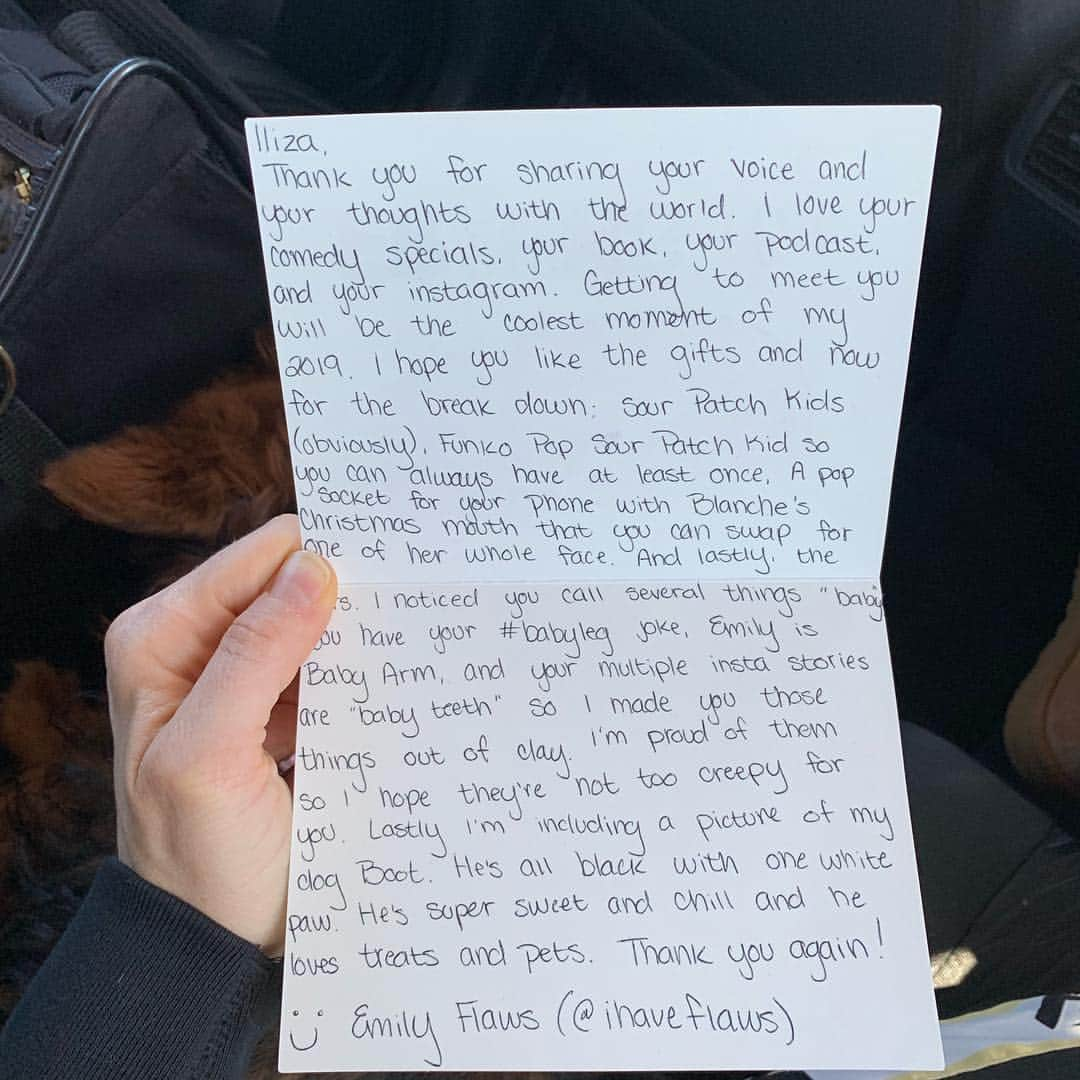 Iliza,
Thank you for sharing your voice and
your thoughts with the world. I love your
comedy specials, your book, your podcast,
and your instagram. Getting to meet you
will be the coolest moment of my
2019. I hope you like the gifts and now
for the break down: Sour Patch Kids
(obviously), Funko Pop Sour Patch Kid so
you can always have at least once, A pop
socket for your phone with Blanche's
Christmas mouth that you can swap for
one of her whole face. And lastly, the
rs. I noticed you call several things "baby
you have your #babyleg joke, Emily is
Baby Arm, and your multiple insta stories
are "baby teeth" so I made you those
things out of clay. I'm proud of them
so I hope they're not too creepy for
you. Lastly I'm including a picture of my
dog Boot. He's all black with one white
paw. He's super sweet and chill and he
loves treats and pets. Thank you again!
Emily Flaws (@ihaveflaws)